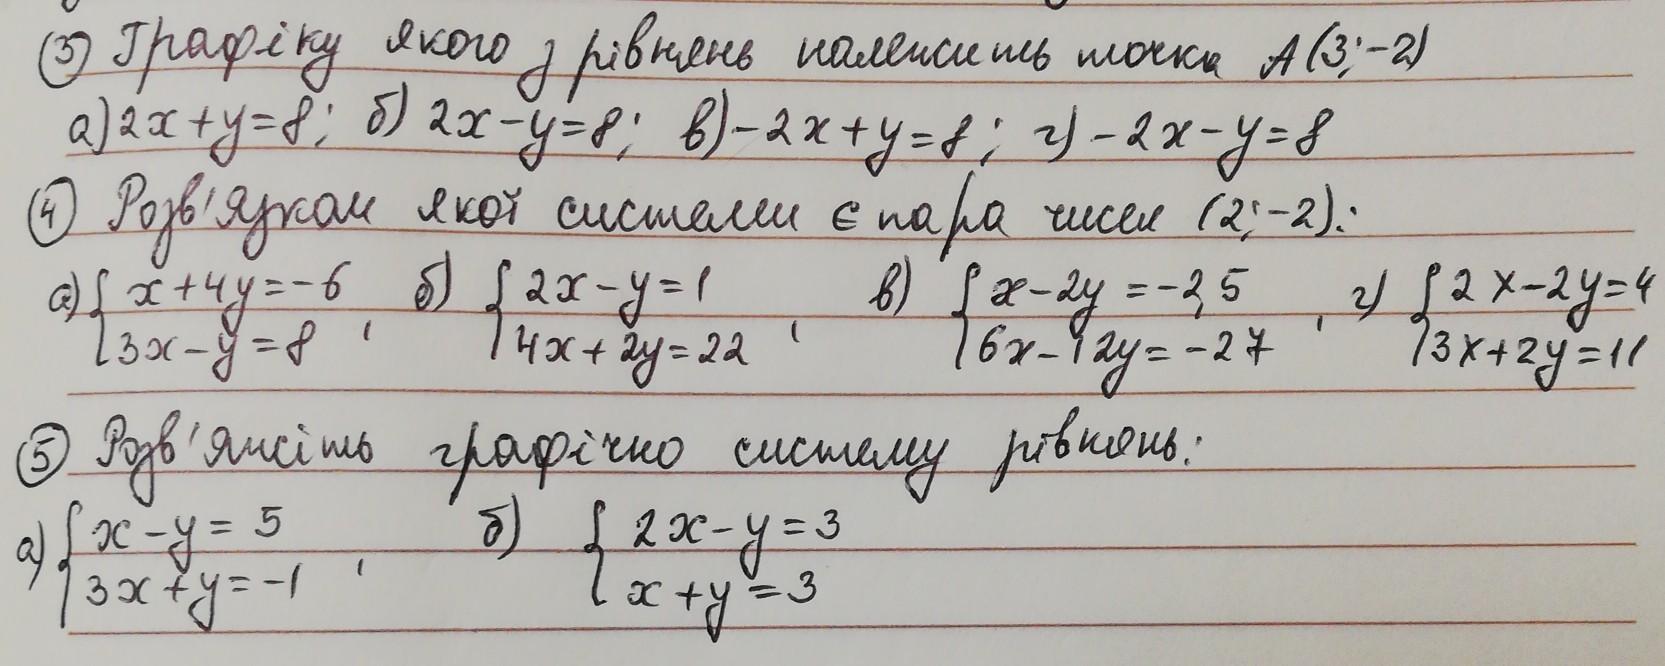 ③ Графіку якого з рівнянь належить точка A(3;-2)
а) 2x+y=8; б) 2x-y=8; в) -2x+y=8; г) -2x-y=8
④ Розв'язком якої системи є пара чисел (2;-2):
а) { x+4y=-6 б) { 2x-y=1 в) { x-2y=-2,5 г) { 2x-2y=4
3x-y=8 , 4x+2y=22 , 6x-12y=-27 , 3x+2y=11
⑤ Розв'яжіть графічно систему рівнянь:
а) { x-y=5 б) { 2x-y=3
3x+y=-1 , x+y=3